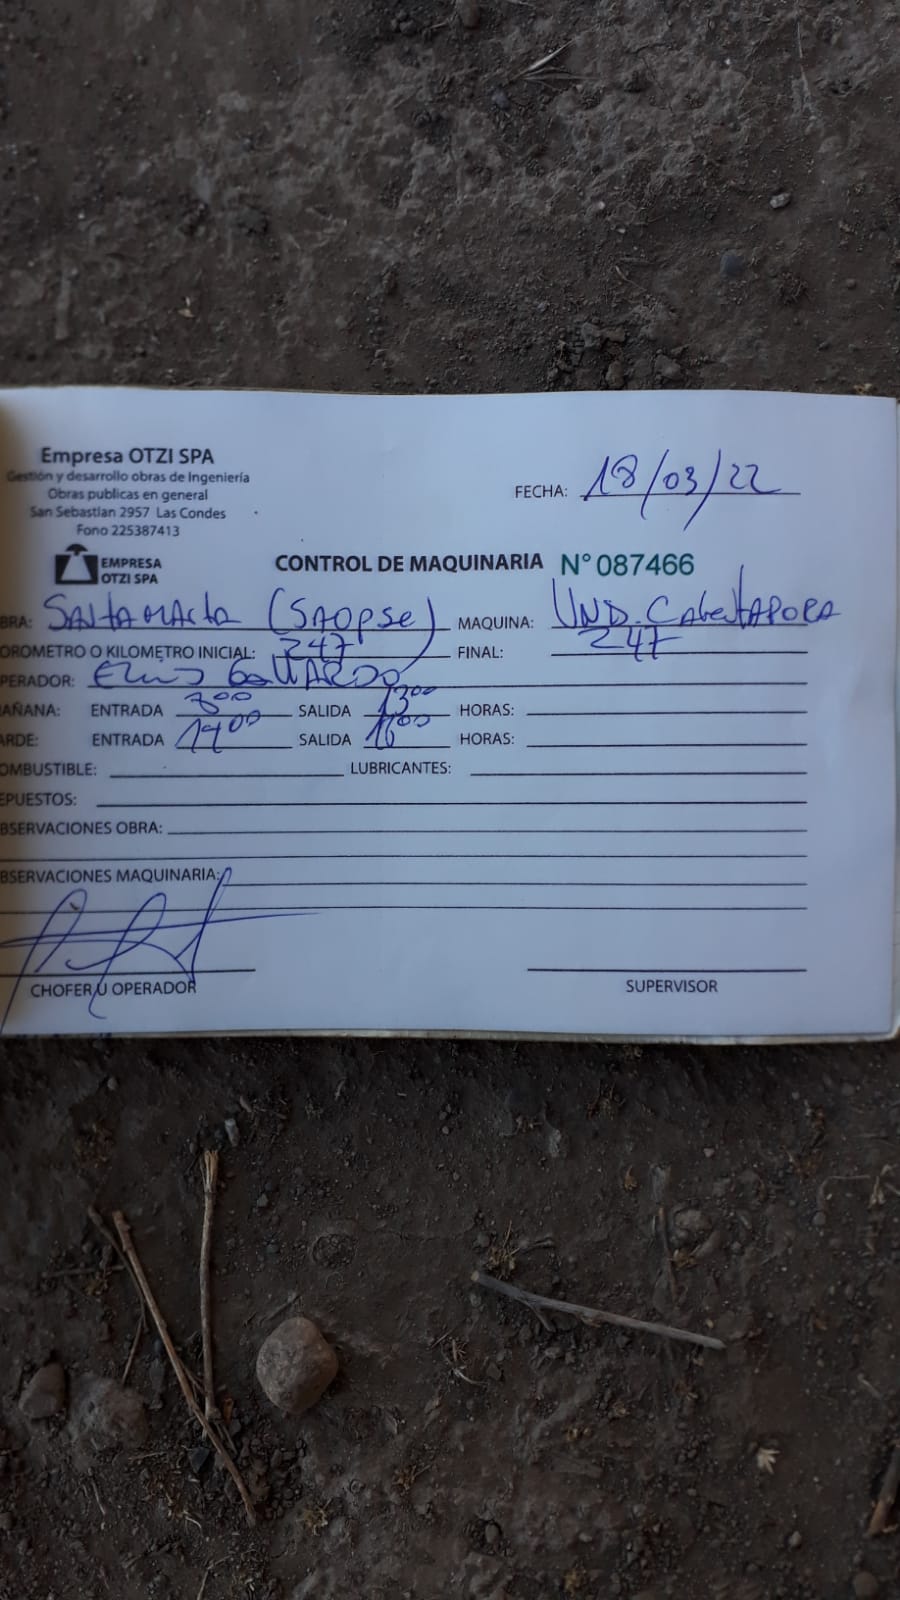 Empresa OTZI SPA
Gestión y desarrollo obras de Ingeniería
Obras publicas en general
San Sebastian 2957 Las Condes
Fono 225387413
FECHA: 18/03/22
EMPRESA
OTZI SPA
CONTROL DE MAQUINARIA N° 087466
BRA: Santa Marta (SAOPSE) MAQUINA: UND. CALENTADORA
OROMETRO O KILOMETRO INICIAL: 247 FINAL: 247
PERADOR: GALLARDO
AÑANA: ENTRADA 800 SALIDA 1300 HORAS:
ARDE: ENTRADA 1400 SALIDA HORAS:
OMBUSTIBLE: LUBRICANTES:
EPUESTOS:
BSERVACIONES OBRA:
BSERVACIONES MAQUINARIA:
CHOFER U OPERADOR SUPERVISOR